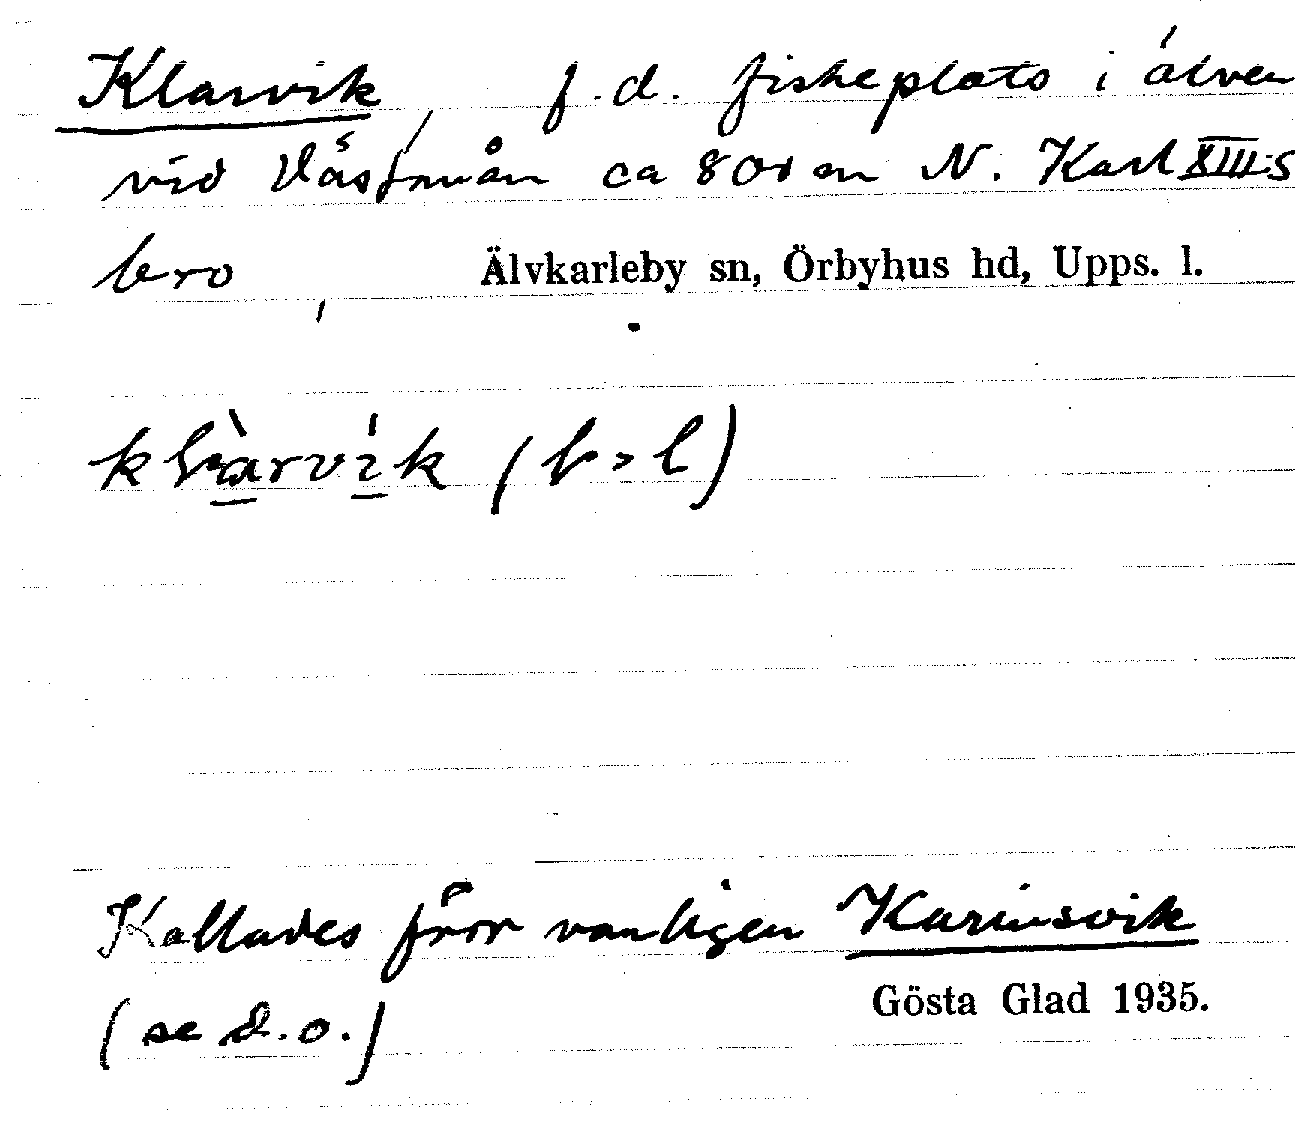 Klarvik, f.d. fiskeplats i älven
vid Västmrån ca 800 m N. Karl XIII:s
bro, Älvkarleby sn, Örbyhus hd, Upps. l.
klàrvík (b>l)
Kallades förr vanligen Karinsvik
(se d.o.)
Gösta Glad 1935.